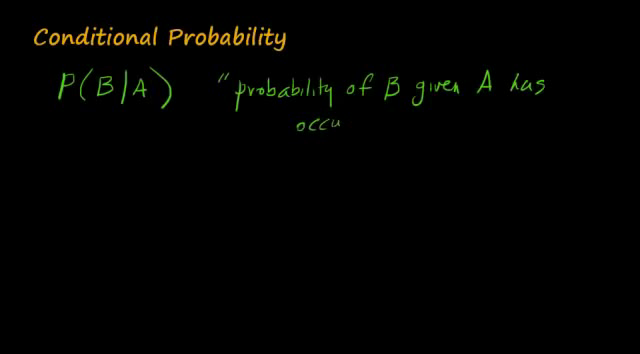 Conditional Probability
P(B|A) "probability of B given A has
occu